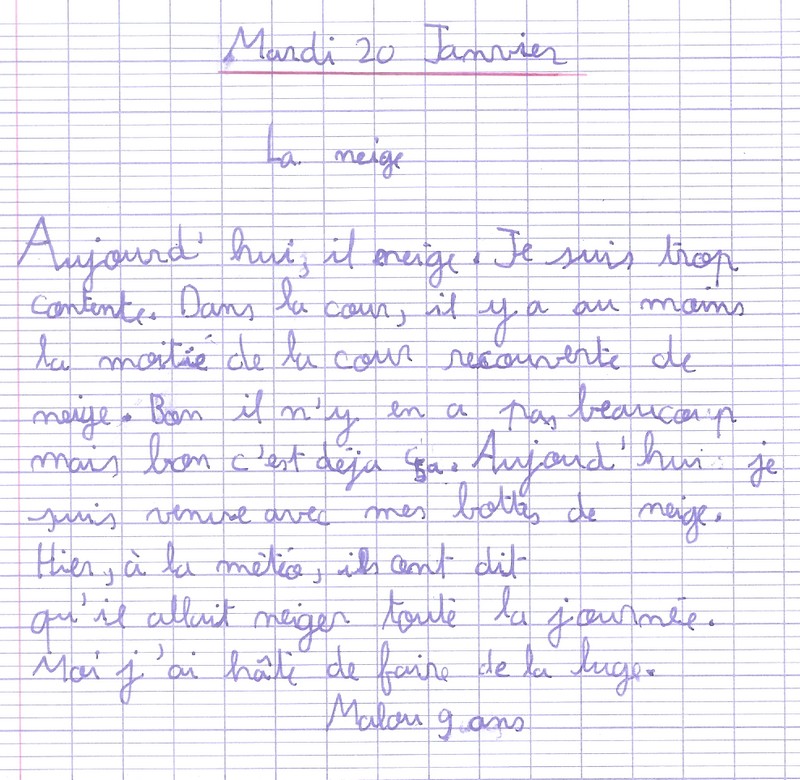 Mardi 20 Janvier
La neige
Aujourd'hui, il neige. Je suis trop
contente. Dans la cour, il y a au moins
la moitié de la cour recouverte de
neige. Bon il n'y en a pas beaucoup
mais bon c'est déja ça. Aujoud'hui je
suis venue avec mes bottes de neige.
Hier, à la météo, ils ont dit
qu'il allait neiger toute la journée.
Moi j'ai hâte de faire de la luge.
Malou 9 ans